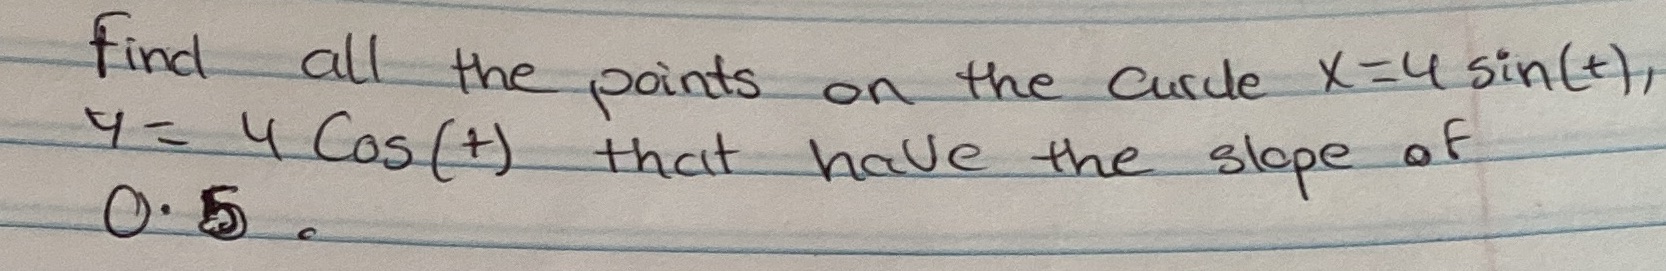 find all the points on the curcle x=4 sin(t),
y= 4 Cos(t) that have the slope of
0.5.